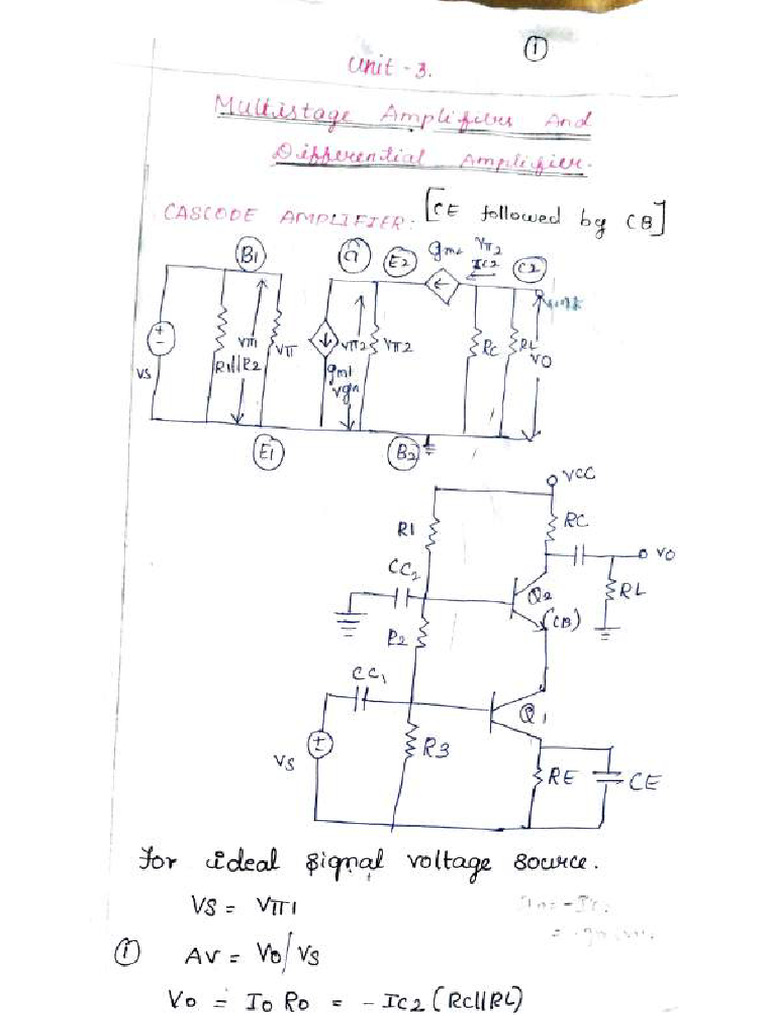 ①
Unit - 3.
Multistage Amplifiers And
Differential Amplifier.
CASCODE AMPLIFIER: [CE followed by CB]
B1 C1 E2 gm2 Vπ2 C2
Ic2
VS R1||R2 Vπ1 Vπ gm1 Vπ2 Vπ2 RC RL VO
E1 B2
VCC
R1 RC
VO
CC2
Q2 RL
(CB)
R2
CC1
Q1
VS R3 RE CE
For ideal signal voltage source.
VS = Vπ1
① AV = Vo/VS
Vo = Io Ro = - Ic2 (Rc||RL)